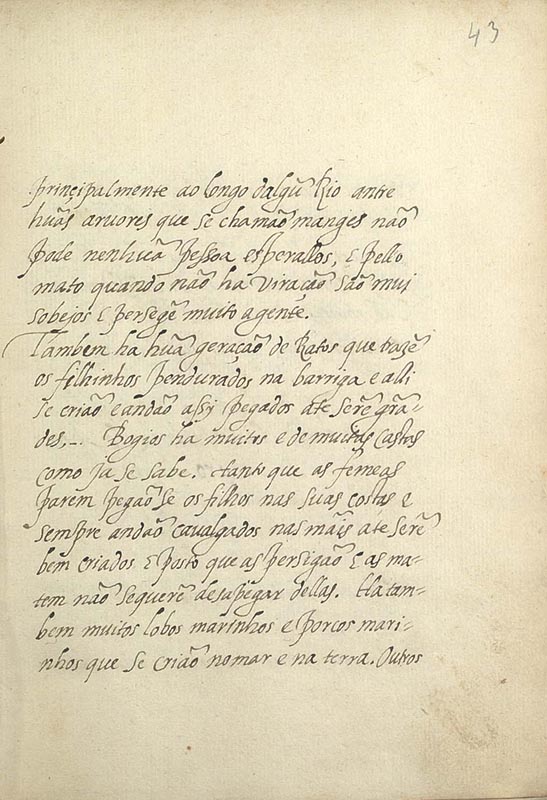 43
principalmente ao longo dalgũ Rio antre
huãs aruores que se chamão manges não
pode nenhuã pessoa esperallos, E pello
mato quando não ha viração são mui
sobejos E persegẽ muito a gente.
Tambem ha huã geração de Ratos que trazẽ
os filhinhos pendurados na barriga e alli
se crião e andão assy pegados ate serẽ grã-
des. Bogios ha muitos e de muitas castas
como ja se sabe. tanto que as femeas
parem pegãose os filhos nas suas costas e
sempre andão cavalgados nas mãis ate serẽ
bem criados E posto que as persigão E as ma-
tem não se querẽ desapegar dellas. Ha tam-
bem muitos lobos marinhos e porcos mari-
nhos que se crião no mar e na terra. Outros